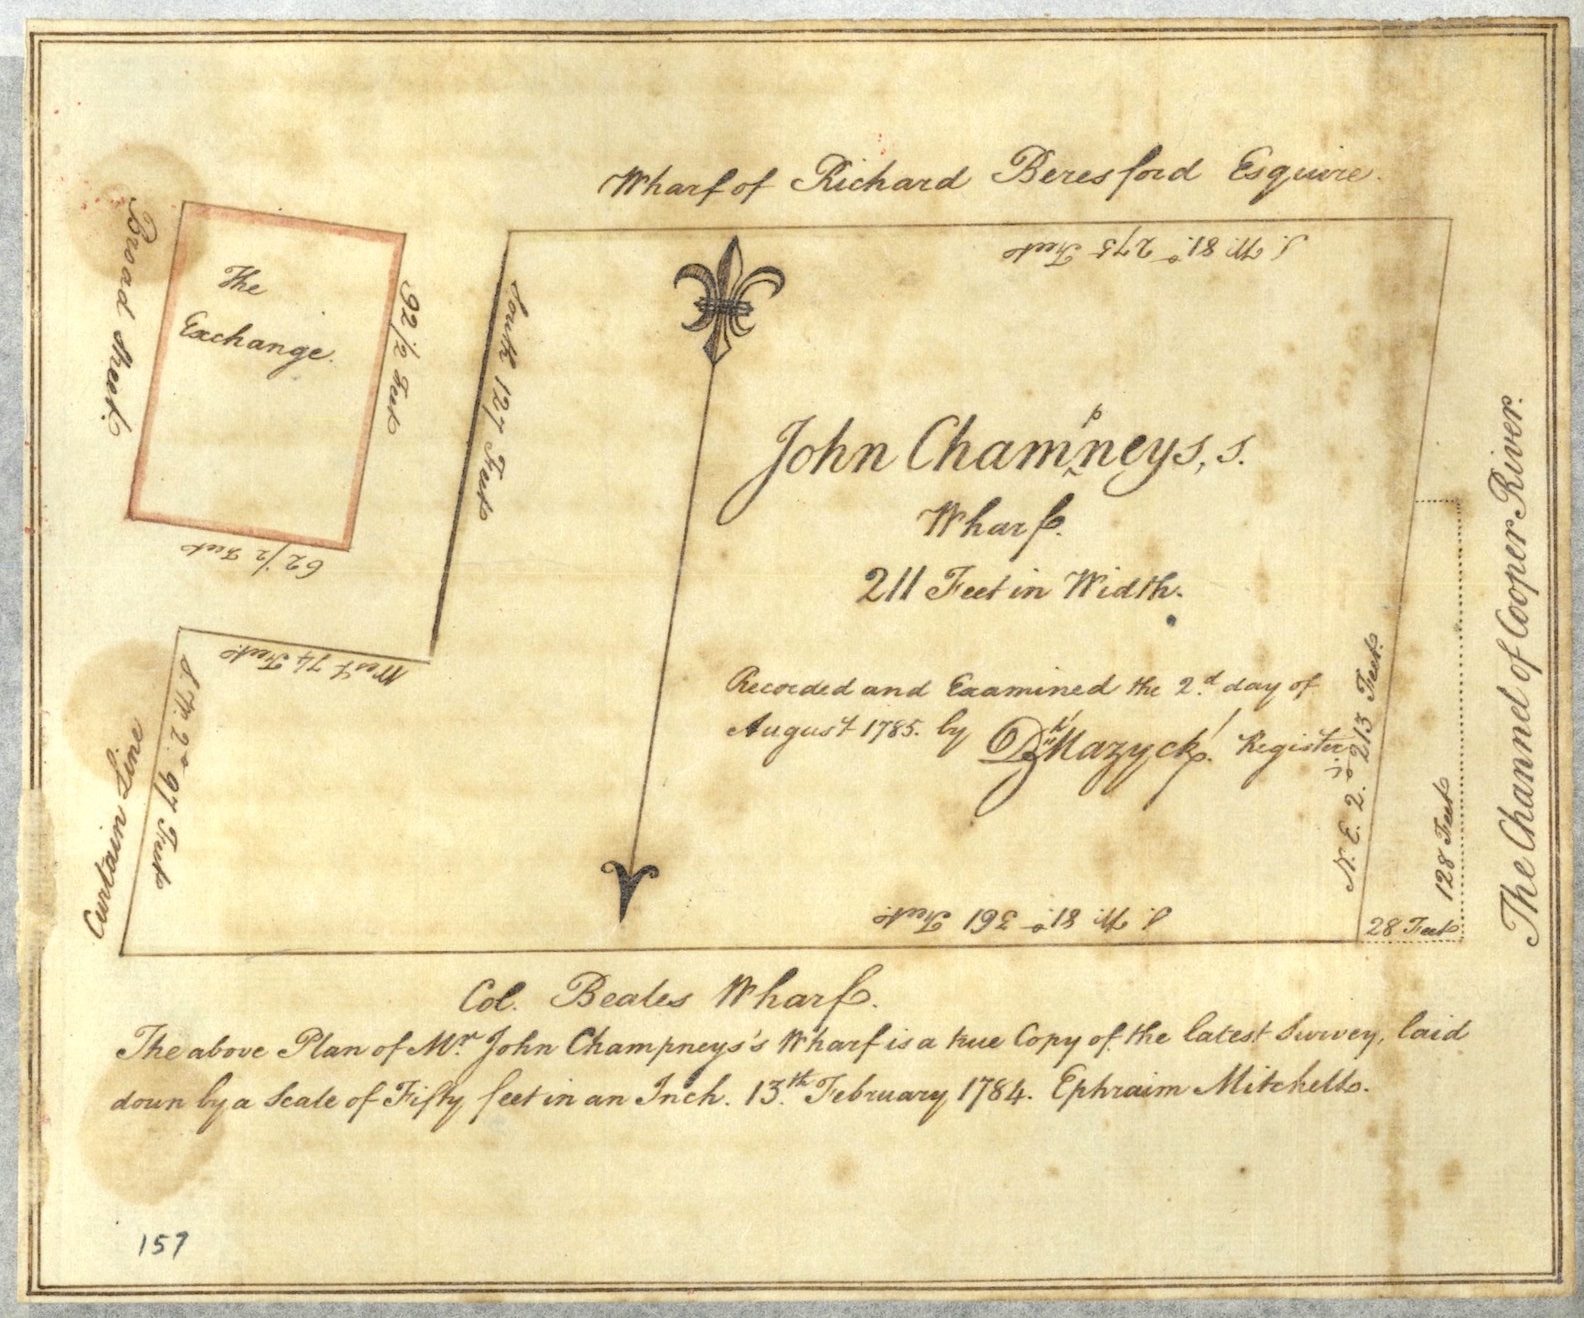 Wharf of Richard Beresford Esquire.
S. W. 81.° 275 Feet
Broad Street.
The
Exchange.
92 1/2 Feet
62 1/2 Feet
South 127 Feet
West 74 Feet
S W. 2° 97 Feet
Curtain Line
John Champneys,s.
Wharf.
211 Feet in Width.
Recorded and Examined the 2.d day of
August 1785. by Dl Mazyck. Register
N. E. 2.° 213 Feet.
128 Feet
28 Feet
The Channel of Cooper River.
S. W. 81.° 361 Feet.
Col. Beales Wharf.
The above Plan of Mr. John Champneys's Wharf is a true Copy of the latest Survey, laid
down by a Scale of Fifty feet in an Inch. 13.th February 1784. Ephraim Mitchell.
157